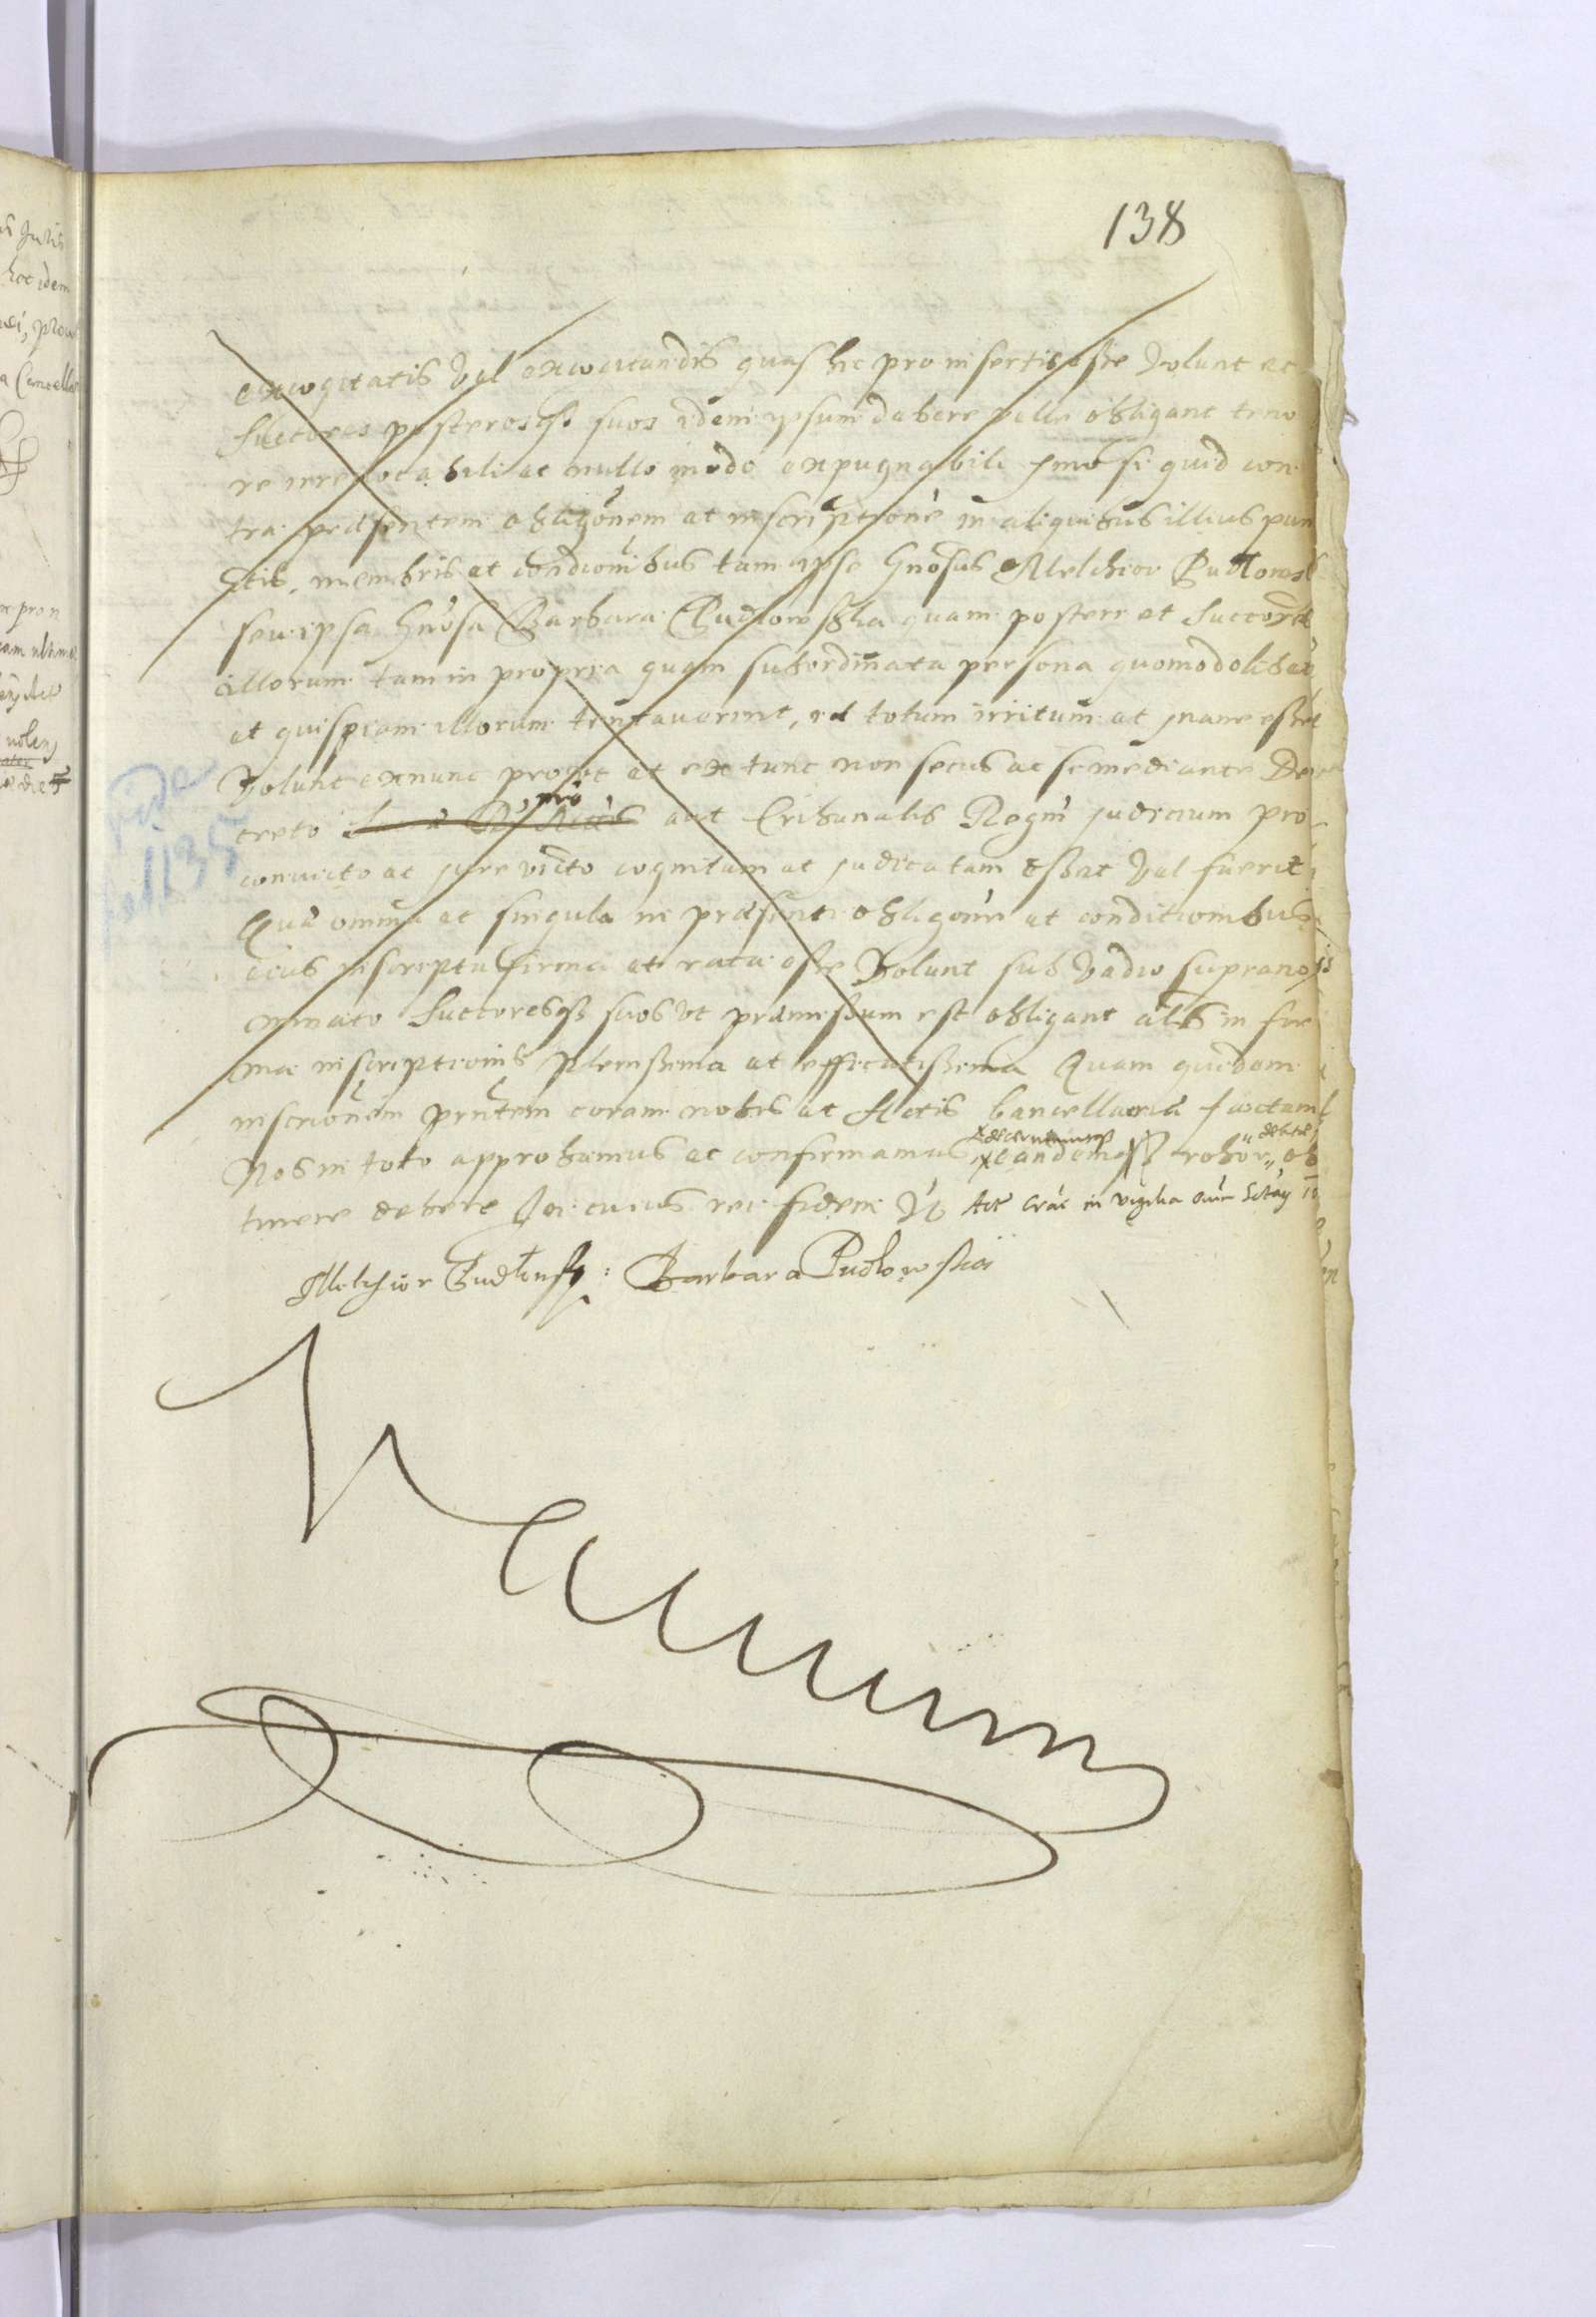 138
excogitatis vel excocitandis quas hic pro insertis esse volunt et
succores posterosq3 suos idem ipsum debere velle obligant teno
re irrevocabili ac nullo modo expugnabili ymo si quid con
tra præsentem obligõnem et inscriptionẽ in aliquibus illius pun
ctis, membris et condicionibus tam ipse Gnosus Melchior Pudlowsk
seu ipsa Gnosa Barbara Pudlowskha quam posteri et succores
illorum tam in propria quam subordinata persona quomodolibet
et quispiam illorum tentaverint, id totum irritum et jnane esse
volunt exnunc prout et ex tunc non secus ac si mediante De
creto aut Tribunalis Regni judicium pro
pro
convicto ac jure victo cognitum et judicatam esset vel fuerit
Quæ omnia et singula in præsenti obligone et conditionibus
eius inscripta firma et rata esse volunt sub vadio suprano
minato succoresq3 suos ut præmissum est obligant in for
ma inscriptionis plenissima et efficacissima Quam quidem
inscrionem prntem coram nobis et Actis Cancellariæ factam
Nos in toto approbamus ac confirmamus eandemq3 robor ob
decernimusq3 debitæ
tinere debere In cuius rei fidem Act Crac in vigilia
Melchior Pudlowsk: Barbara Pudlowska
vide
fol 1135